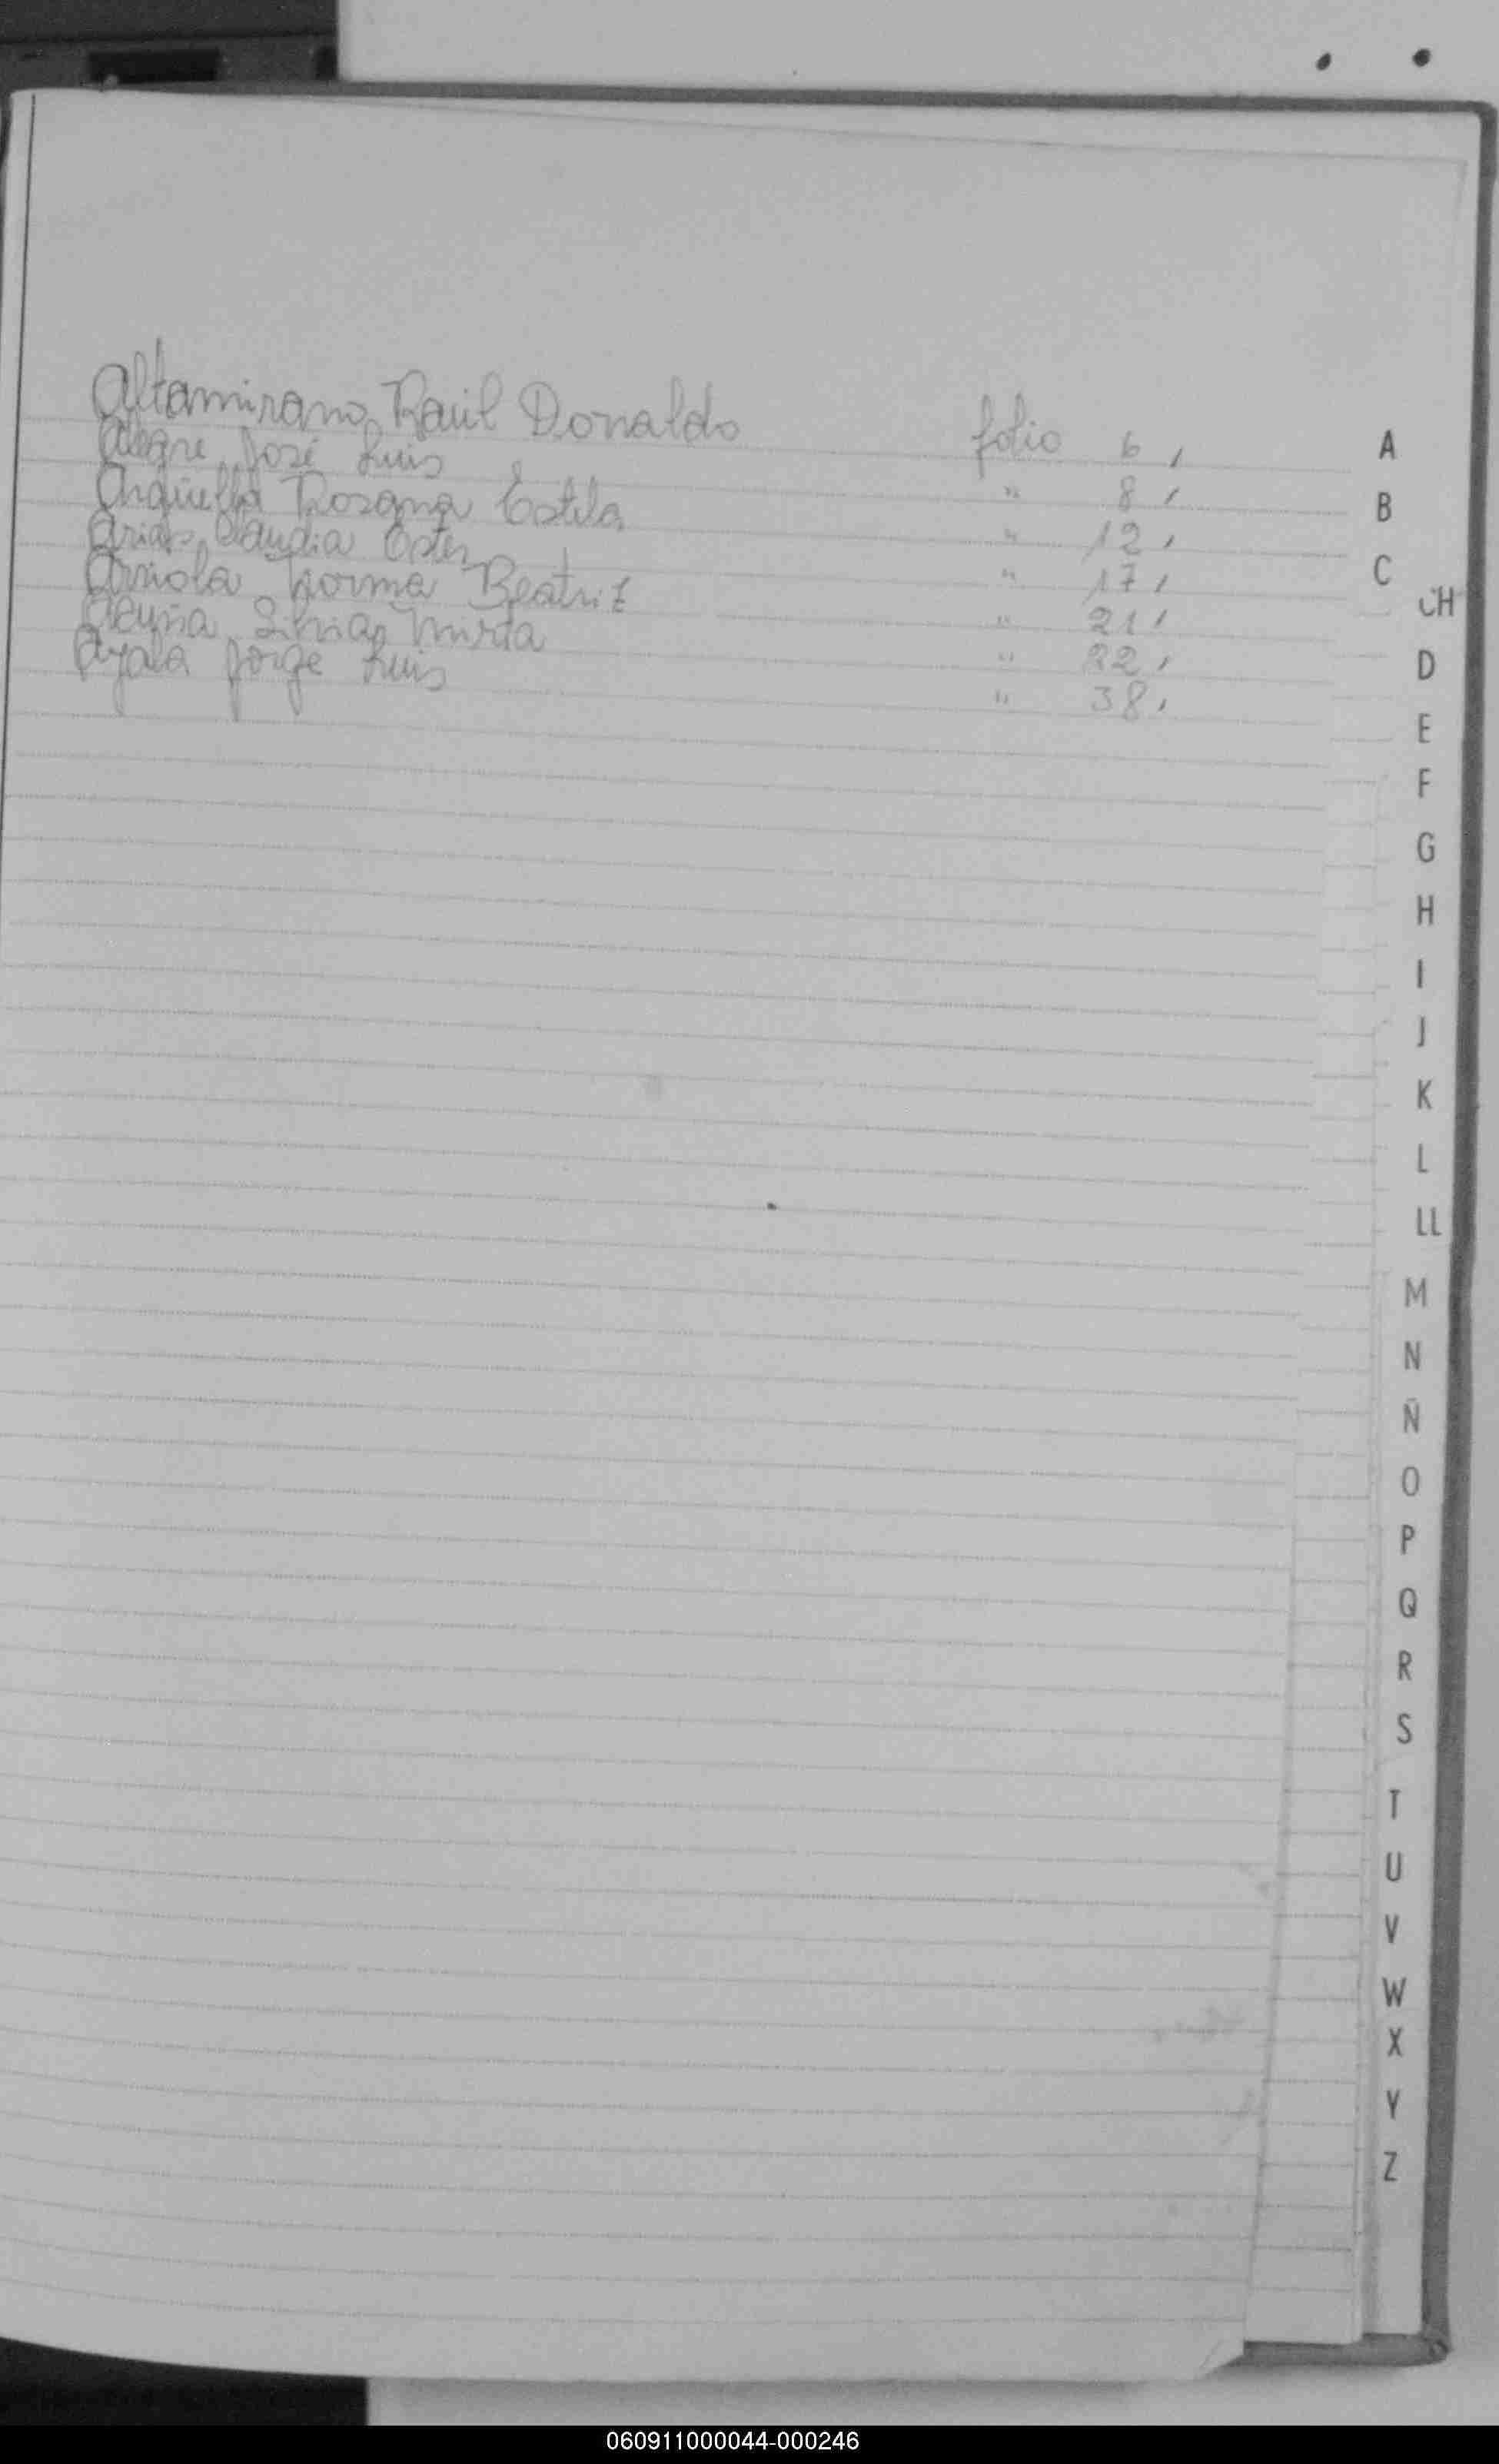 Altamirano, Raúl Donaldo folio 6,
Alegre José Luis " 8,
Argüella Rosana Estela " 12,
Arias, Claudia Ester " 17,
Arriola Norma Beatriz " 21,
Acuña Silvia Mirta " 22,
Ayala Jorge Luis " 38,
A
B
C
CH
D
E
F
G
H
I
J
K
L
LL
M
N
Ñ
O
P
Q
R
S
T
U
V
W
X
Y
Z
060911000044-000246